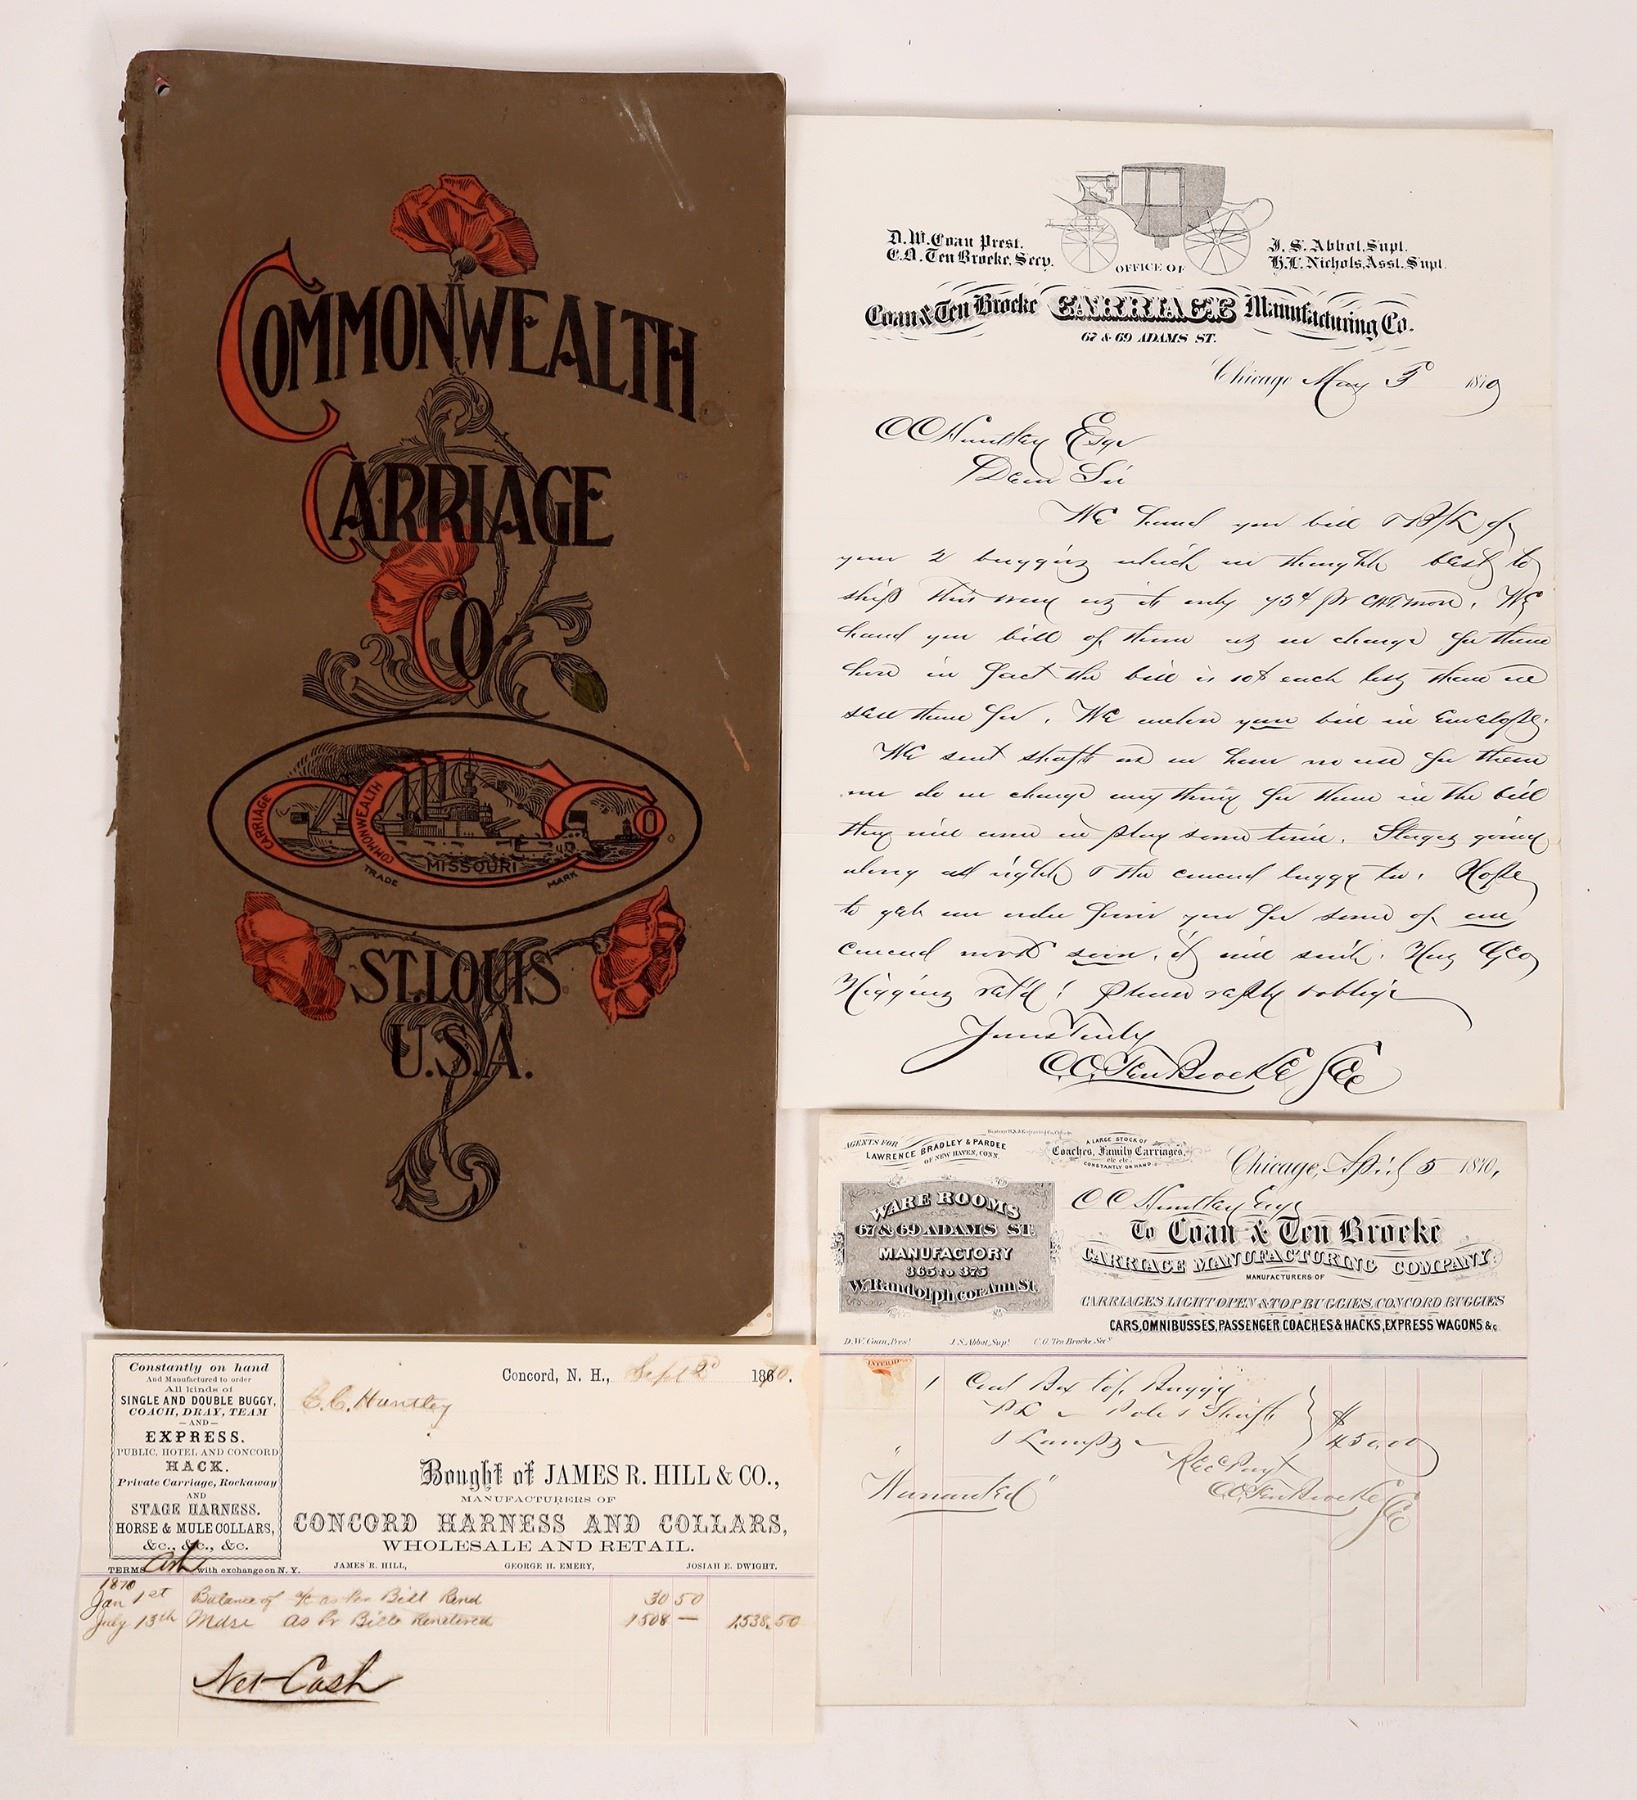 COMMONWEALTH
CARRIAGE
CO.
CARRIAGE COMMONWEALTH CO.
MISSOURI
TRADE MARK
ST. LOUIS
U.S.A.
D. W. Coan Prest.
C. O. Ten Broeke, Secy.
J. S. Abbot, Supt.
H. L. Nichols, Asst. Supt.
OFFICE OF
Coan & Ten Broeke CARRIAGE Manufacturing Co.
67 & 69 ADAMS ST.
Chicago May 1870
C C Huntley Esqr
Dear Sir
We hand you bill & B/L of
your 2 buggies which we thought best to
ship this way as it's only 75¢ pr cwt more. We
hand you bill of them as we charge for them
here in fact the bill is 10$ each less than we
sell them for. We enclose your bill in Envelope.
We sent shafts as we have no use for them
nor do we charge anything for them in the bill
they will come in play some time. Stages going
along all right & the buggy too. Hope
to get an order from you for some of our
work soon, if will suit. Has Geo
Higgins ret'd! Please reply & oblige
Yours Truly
C. O. Ten Broeke Sec
AGENTS FOR
LAWRENCE BRADLEY & PARDEE
OF NEW HAVEN, CONN.
A LARGE STOCK OF
Coaches, Family Carriages,
etc etc
CONSTANTLY ON HAND
Chicago, April 5 1870,
C C Huntley Esqr
WARE ROOMS
67 & 69 ADAMS ST.
MANUFACTORY
365 to 375
W. Randolph cor. Ann St.
To Coan & Ten Broeke
CARRIAGE MANUFACTURING COMPANY
MANUFACTURERS OF
CARRIAGES, LIGHT OPEN & TOP BUGGIES, CONCORD BUGGIES
CARS, OMNIBUSSES, PASSENGER COACHES & HACKS, EXPRESS WAGONS &c.
D. W. Coan, Pres! J. S. Abbot, Sup! C. O. Ten Broeke, Sec'y
1 Coal Box top Buggy
Pole & Shafts
& Lamps $450.00
Rec'd Payt
Warranted C. O. Ten Broeke Sec
Constantly on hand
And Manufactured to order
All kinds of
SINGLE AND DOUBLE BUGGY,
COACH, DRAY, TEAM
—AND—
EXPRESS.
PUBLIC, HOTEL AND CONCORD
HACK.
Private Carriage, Rockaway
AND
STAGE HARNESS.
HORSE & MULE COLLARS,
&c., &c., &c.
TERMS Cash with exchange on N. Y.
Concord, N. H., Sept 2d 1870.
C. C. Huntley
Bought of JAMES R. HILL & CO.,
MANUFACTURERS OF
CONCORD HARNESS AND COLLARS,
WHOLESALE AND RETAIL.
JAMES R. HILL, GEORGE H. EMERY, JOSIAH E. DWIGHT.
1870
Jan 1st Balance of a/c as Per Bill Rend 30 50
July 13th Mdse as Pr Bills Rendered 1508 — 1,538,50
Net Cash